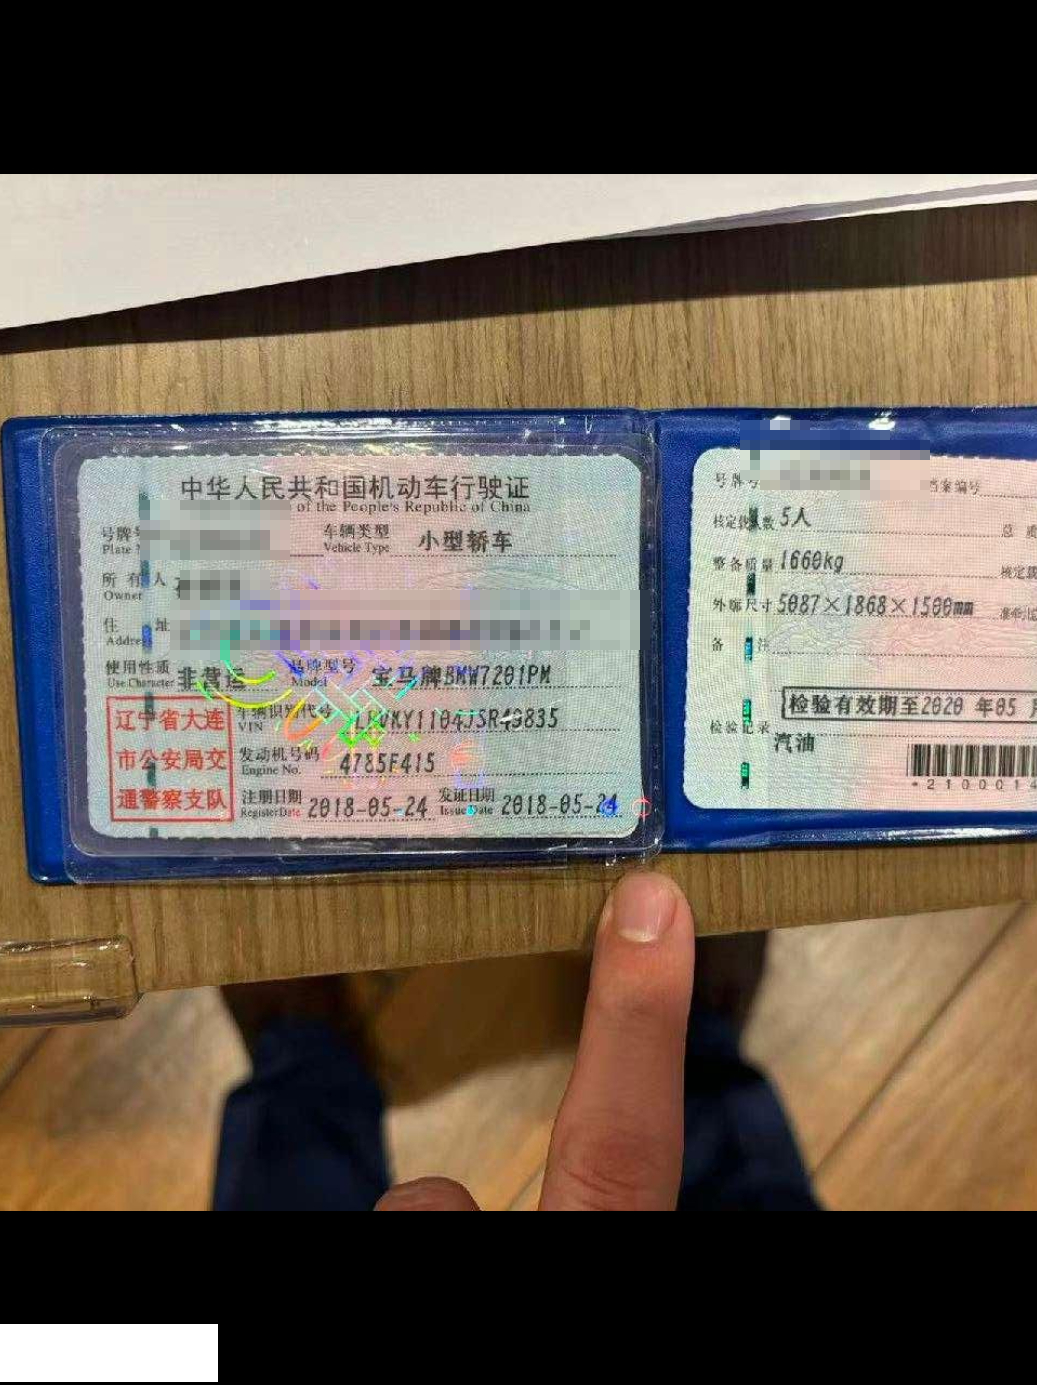 中华人民共和国机动车行驶证
of the People's Republic of China
号牌号
Plate
车辆类型
Vehicle Type
小型轿车
所有人
Owner
住址
Address
使用性质
Use Character
非营运
品牌型号
Model
宝马牌BMW7201PM
辽宁省大连
市公安局交
通警察支队
车辆识别代号
VIN
发动机号码
Engine No.
4785F415
注册日期
Register Date
2018-05-24
发证日期
Issue Date
2018-05-24
号牌号
档案编号
核定载人数 5人
总质
整备质量 1660kg
核定载
外廓尺寸 5087×1868×1500mm
备注
检验有效期至2020 年05 月
检验记录
汽油
*2100014